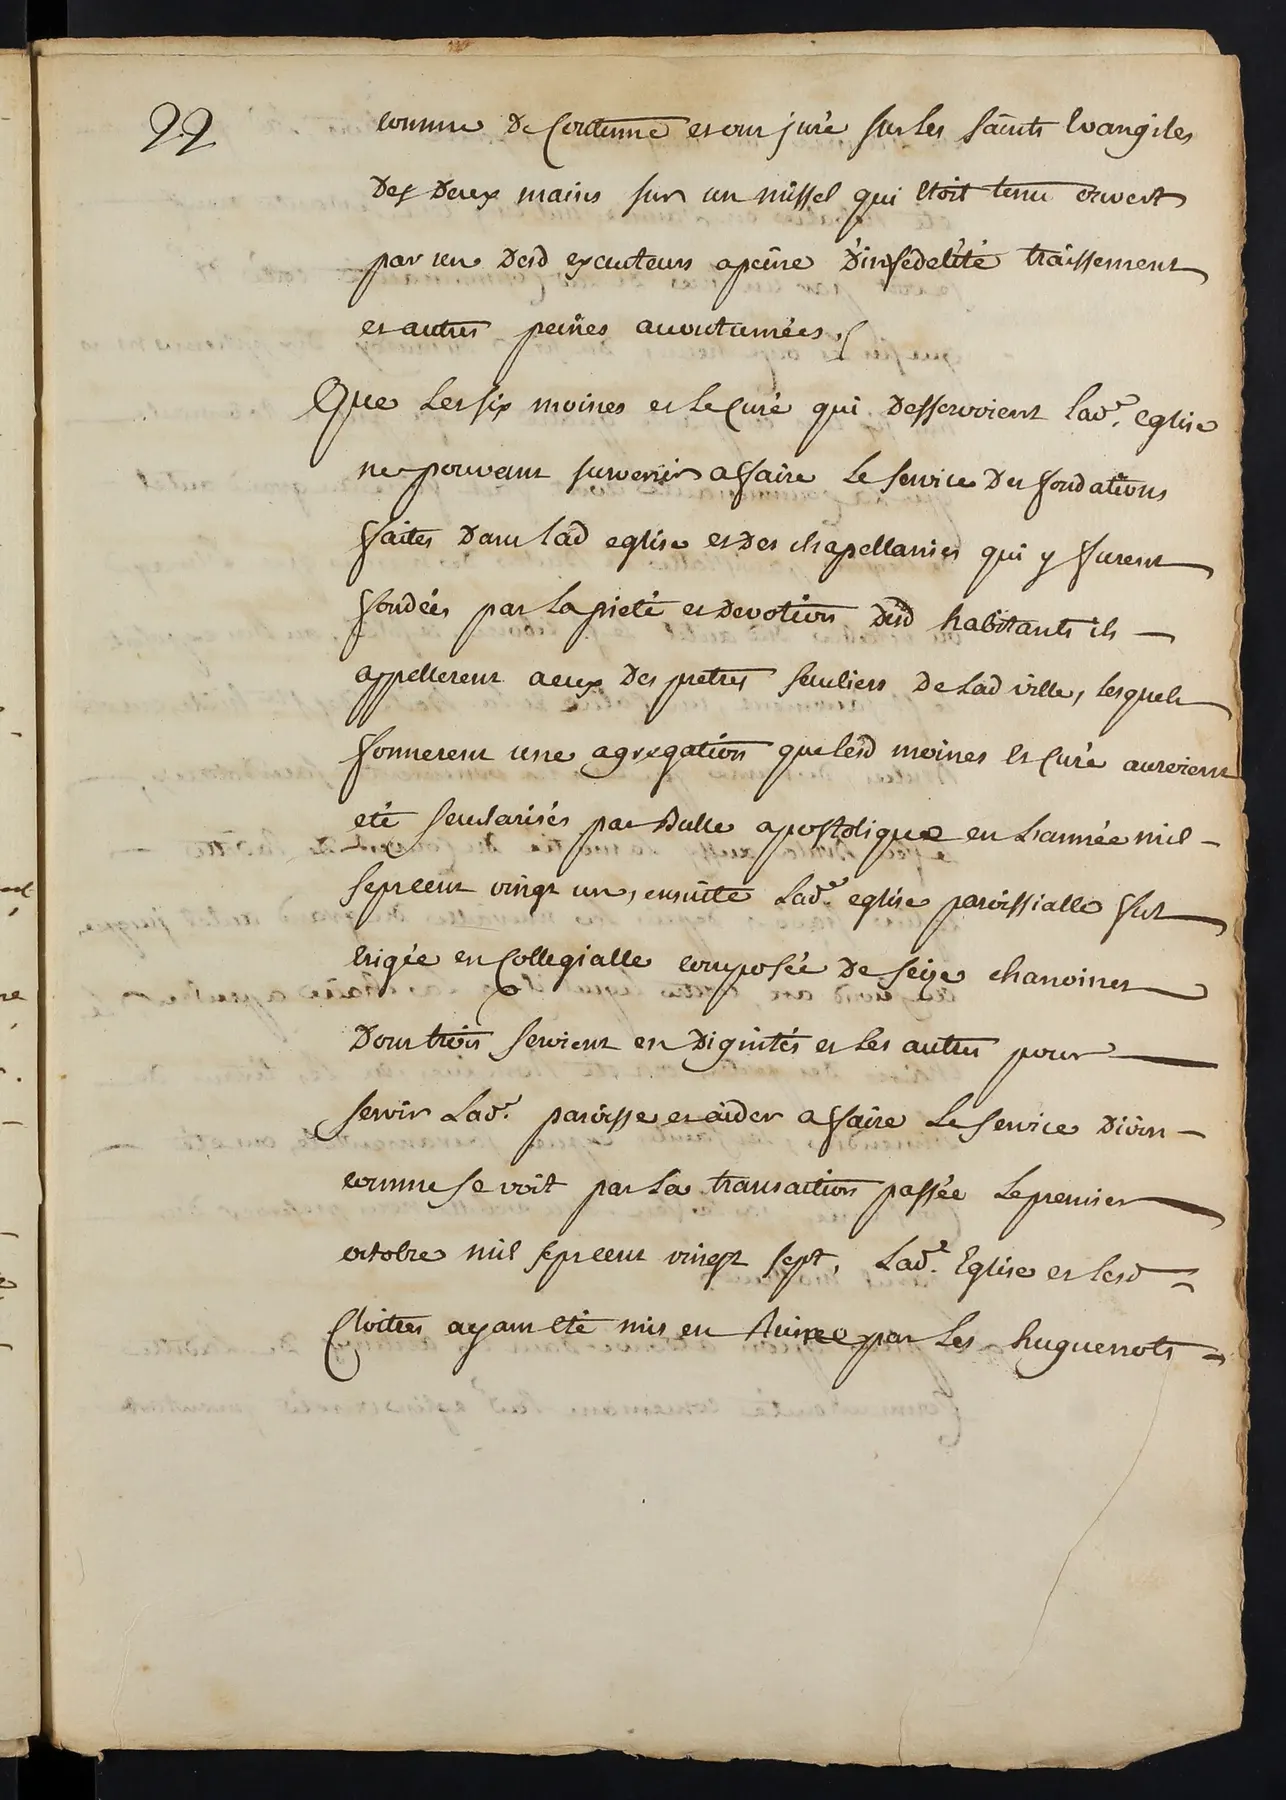 22
comme de Coutume et ont juré sur les saints Evangiles
des deux mains sur un missel qui etoit tenu ouvert
par un desd executeurs a peine d'infedelité traissement
et autres peines acoutumées
Que les six moines et le Curé qui desservoient lad.e eglise
ne pouvant survenir a ffaire le service des ffondations
ffaites dans lad eglise et des chapellanies qui y ffurent
ffondées par la pieté et devotion desd habitants ils
appellerent a eux des pretres seculiers de lad ville, lesquels
fformerent une agregation que lesd moines et Curé auroient
eté secularisés par Bulle apostolique en l'année mil
sept cent vingt un, ensuite lad.e eglise paroissialle ffut
Erigée en Collegialle composée de seize chanoines
dont trois seroient en dignités et les autres pour
servir lad.e paroisse et aider a ffaire le service divin
comme se voit par la transaction passée le premier
octobre mil sept cent vingt sept, lad.e Eglise et lesd
Cloitres ayant eté mis en Ruinee par les huguenots